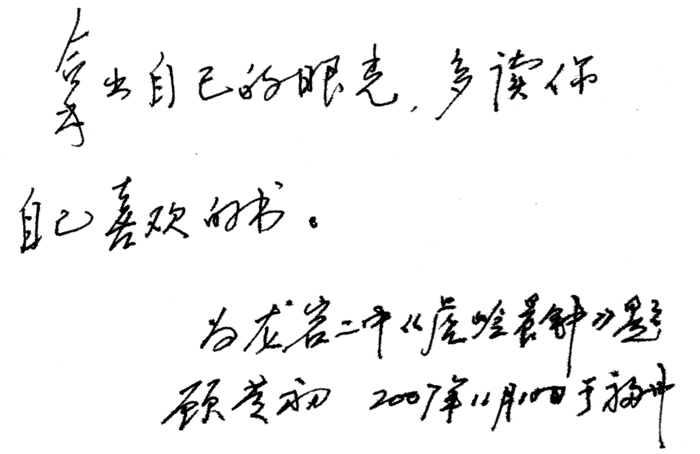 拿出自己的眼光,多读你
自己喜欢的书。
为龙岩二中《虎岭晨钟》题
顾黄初 2007年11月10日于福州